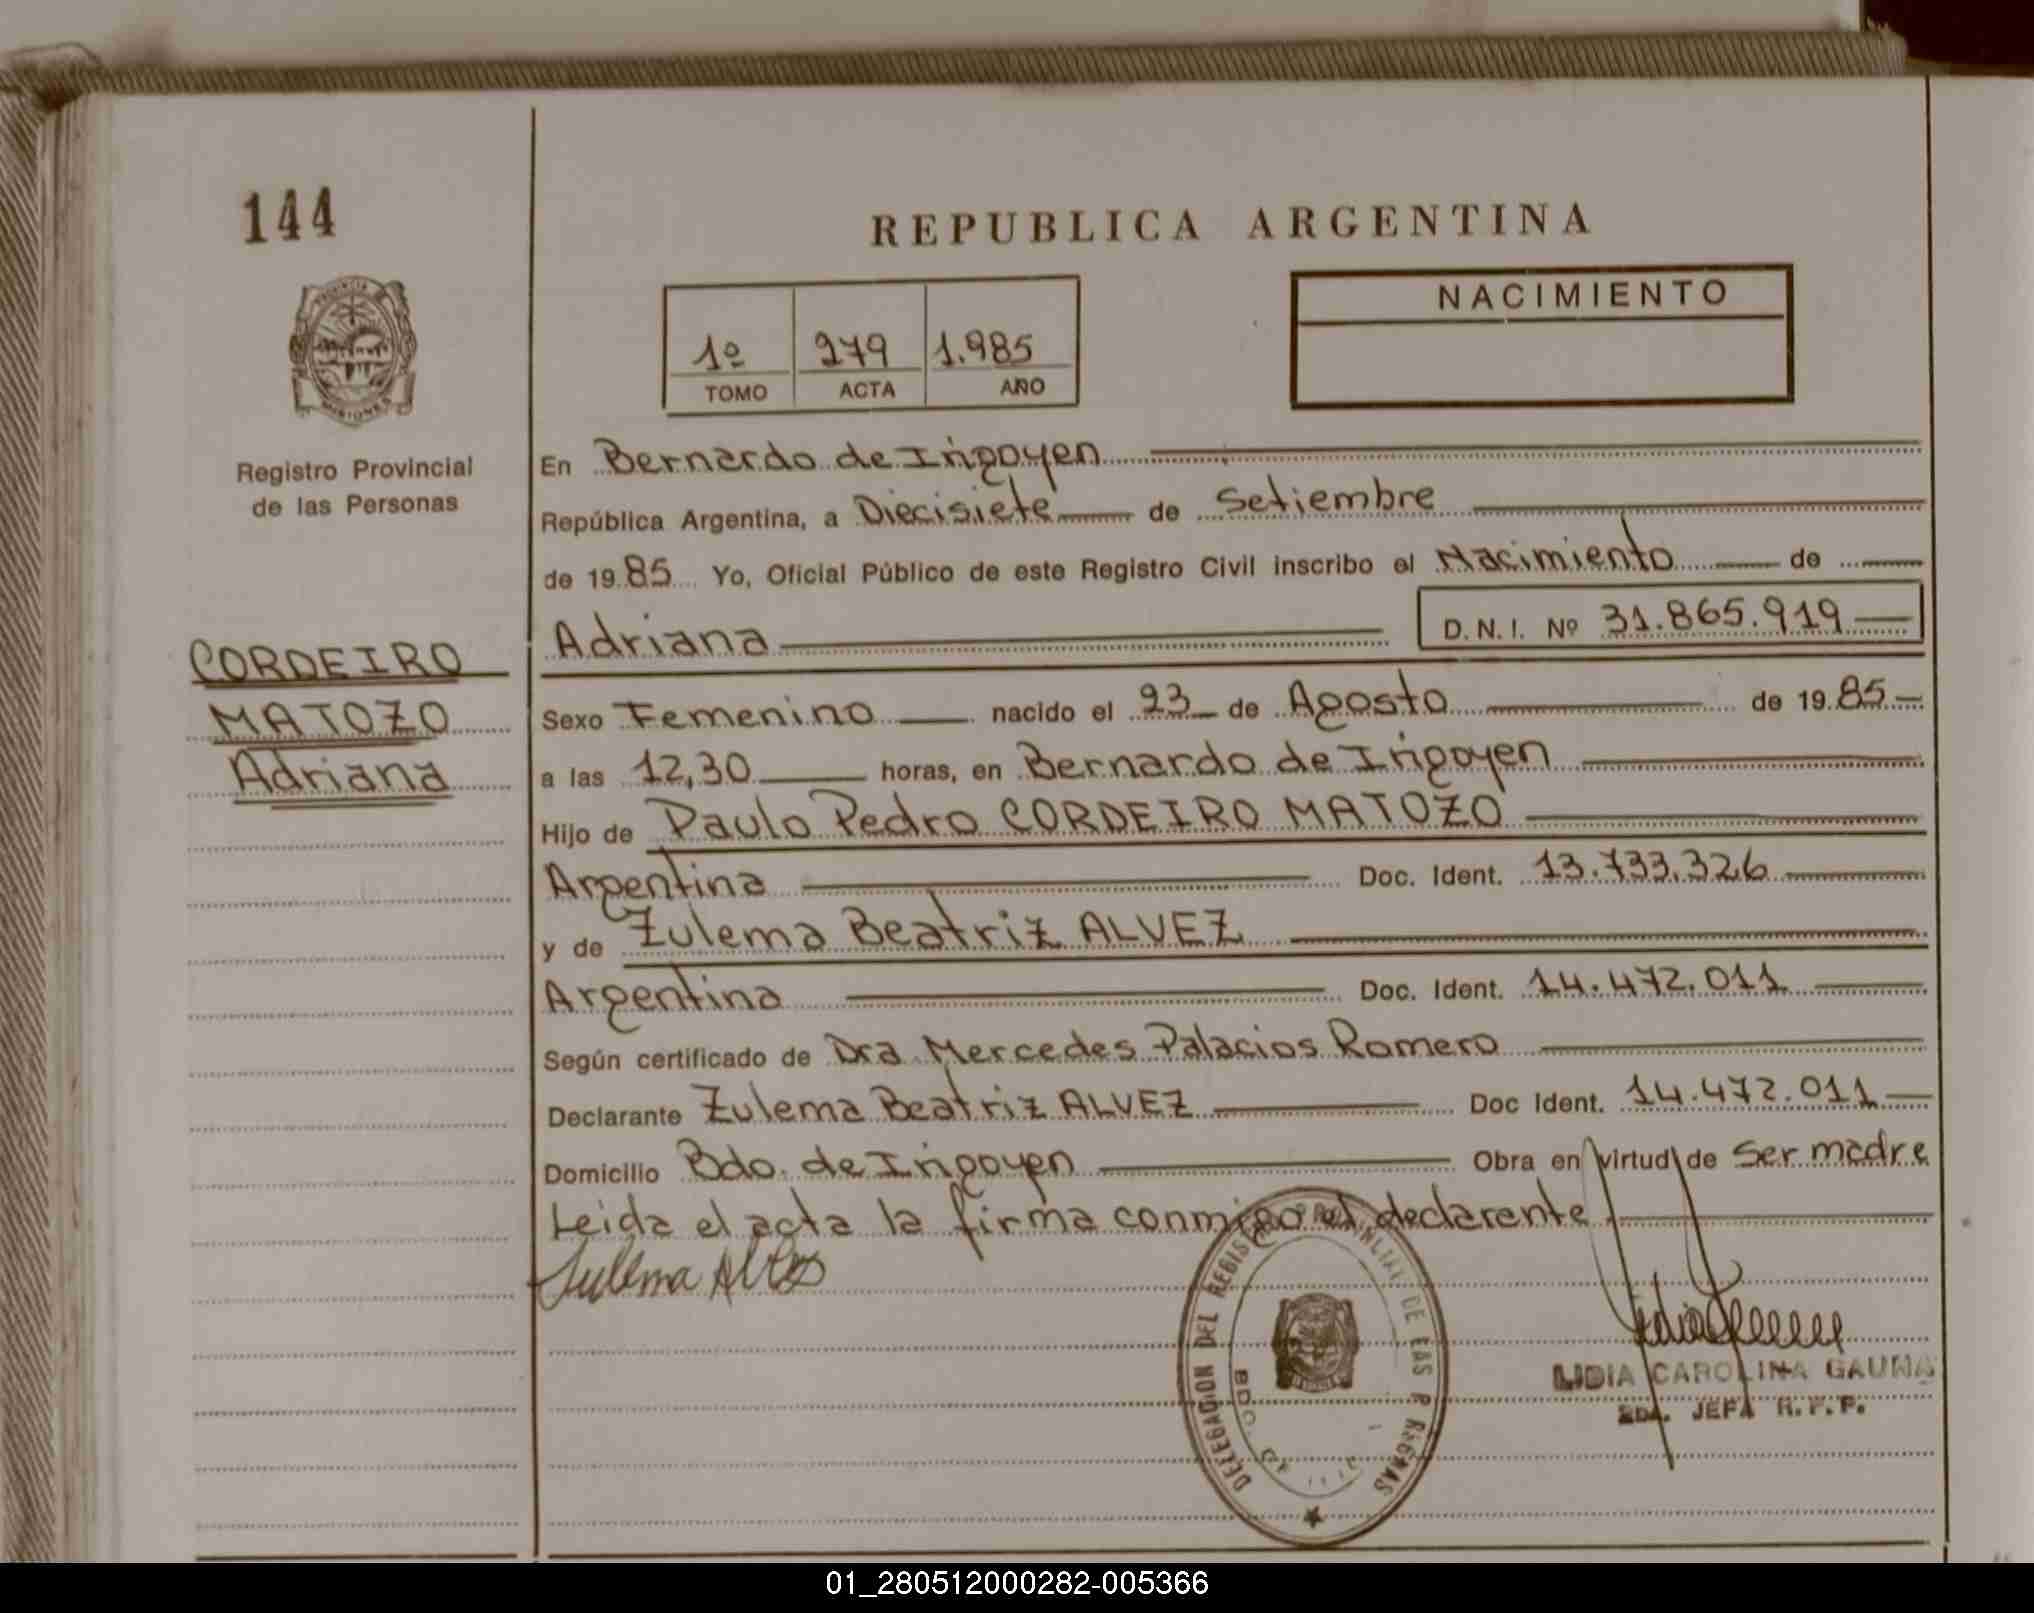 144
REPUBLICA ARGENTINA
PROVINCIA DE
MISIONES
Registro Provincial
de las Personas
1º 279 1.985
TOMO ACTA AÑO
NACIMIENTO
En Bernardo de Irigoyen
República Argentina, a Diecisiete de Setiembre
de 1985 Yo, Oficial Público de este Registro Civil inscribo el Nacimiento de
Adriana D.N.I. Nº 31.865.919
CORDEIRO
MATOZO
Adriana
Sexo Femenino nacido el 23 de Agosto de 1985
a las 12,30 horas, en Bernardo de Irigoyen
Hijo de Paulo Pedro CORDEIRO MATOZO
Argentina Doc. Ident. 13.733.326
y de Zulema Beatriz ALVEZ
Argentina Doc. Ident. 14.472.011
Según certificado de Dra Mercedes Palacios Romero
Declarante Zulema Beatriz ALVEZ Doc Ident. 14.472.011
Domicilio Bdo. de Irigoyen Obra en virtud de Ser madre
Leida el acta la firma conmigo el declarante
Sulema Alvez
DELEGACION DEL REGISTRO PROVINCIAL DE LAS PERSONAS
BDO. DE
LIDIA CAROLINA GAUNA
2DA. JEFA R.P.P.
01_280512000282-005366